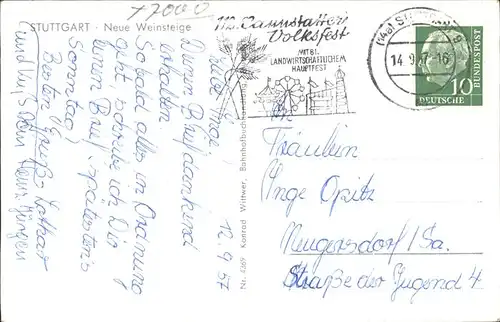 +7000
STUTTGART - Neue Weinsteige
12.9.57
Liebe Inge,
Deinen Brief dankend
erhalten.
Sobald alles in Ordnung
geht schreibe ich Dir
einen Brief, spätestens
Sonntag,
Besten Gruß Lothar
(und Kuß) Dein Hans Jürgen
Nr. 4369 Konrad Wittwer, Bahnhofbuchhandlung
112. Cannstatter
Volksfest
MIT 81.
LANDWIRTSCHAFTLICHEM
HAUPTFEST
(14a)
14.9.57-16
10
DEUTSCHE
BUNDESPOST
An
Fräulein
Inge Opitz
Neugersdorf/Sa.
Straße der Jugend 4